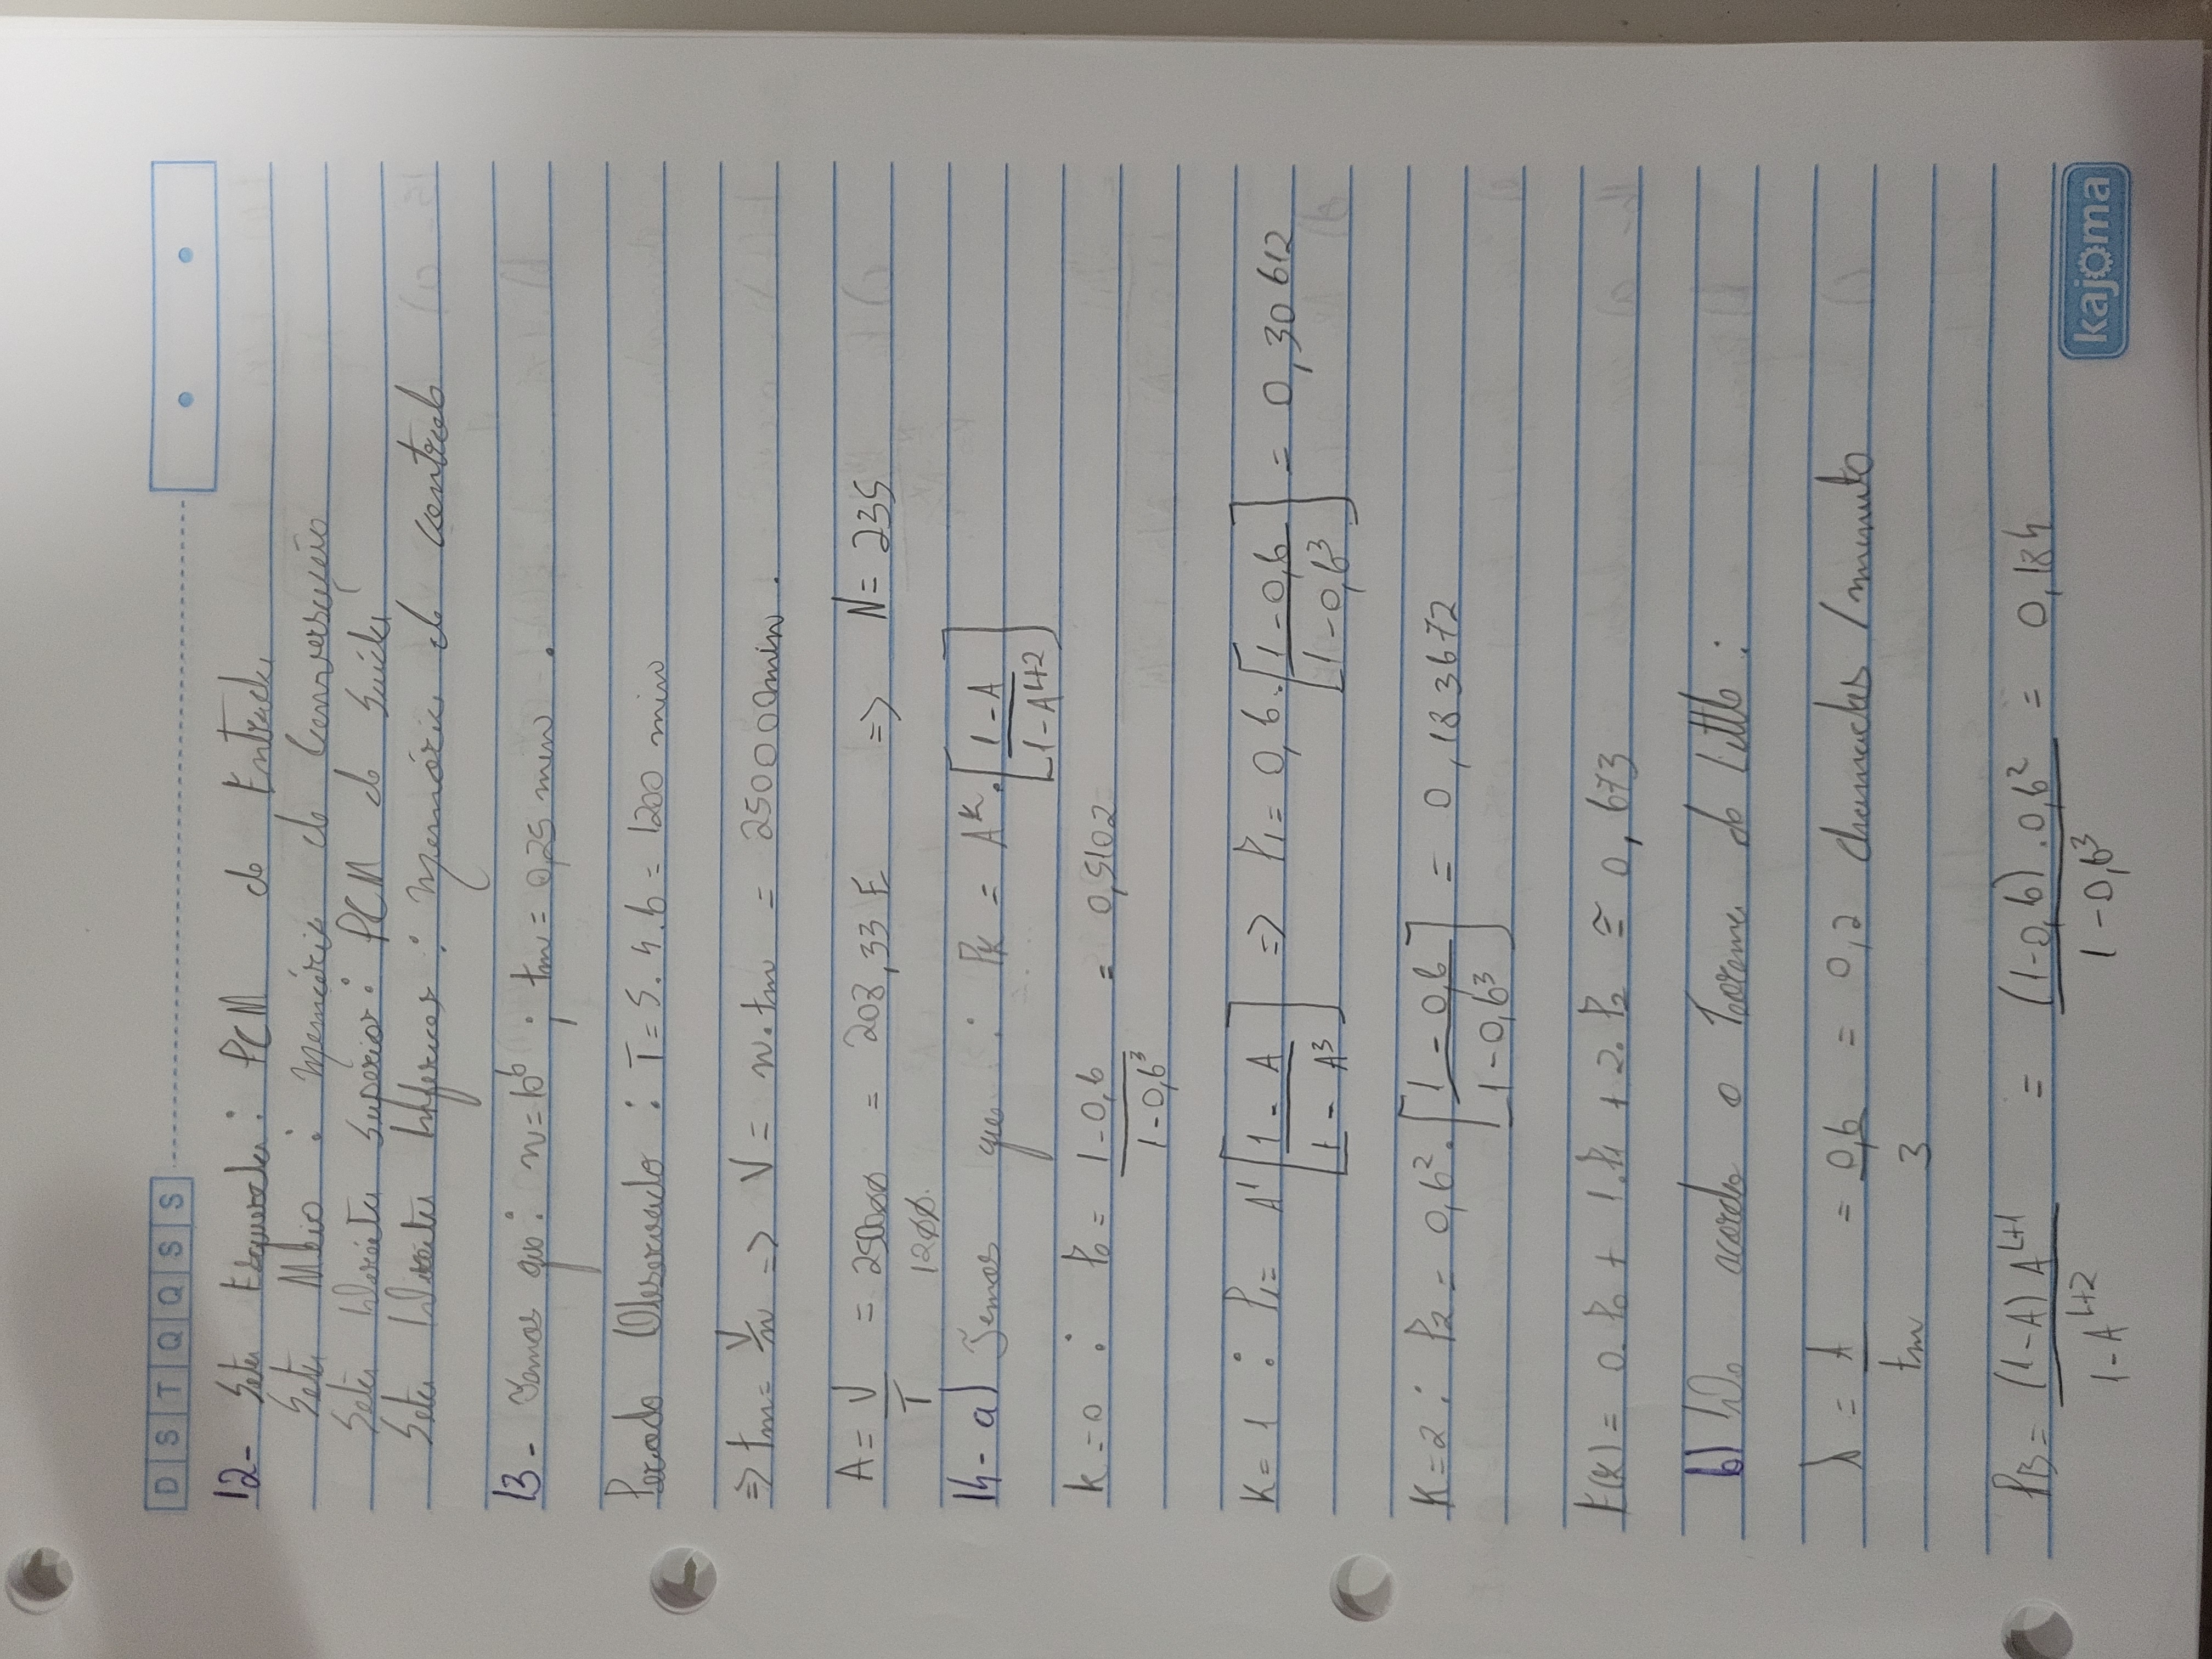 D S T Q Q S S
12- Seta Esquerda : PCM de Entrada
Seta Meio : Memória de Conversação
Seta Direita Superior : PCM de Saída
Seta Direita Inferior : Memória de controle
13- Temos que : n = 10^6 ; tm = 0,25 min .
Período Observado : T = 5.4.6 = 1200 min
=> tm = V/n => V = n.tm = 250000min .
A = V/T = 250000/1200 = 208,33 E => N = 235
14- a) Temos que : Pk = A^k . [(1-A)/(1-A^(L+2))]
k = 0 : P0 = (1-0,6)/(1-0,6^3) = 0,5102
K = 1 : P1 = A^1 [(1-A)/(1-A^3)] => P1 = 0,6 . [(1-0,6)/(1-0,6^3)] = 0,30612
K = 2 : P2 = 0,6^2 . [(1-0,6)/(1-0,6^3)] = 0,183672
E(k) = 0.P0 + 1.P1 + 2.P2 ≅ 0,673
b) De acordo o Teorema de Little :
λ = A/tm = 0,6/3 = 0,2 chamadas / minuto
PB = (1-A) A^(L+1)/(1-A^(L+2)) = (1-0,6) . 0,6^2/(1-0,6^3) = 0,184
kajoma